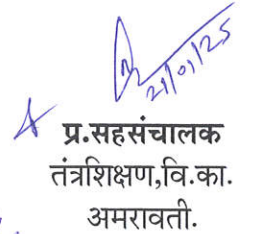 21/01/25
प्र.सहसंचालक
तंत्रशिक्षण,वि.का.
अमरावती.